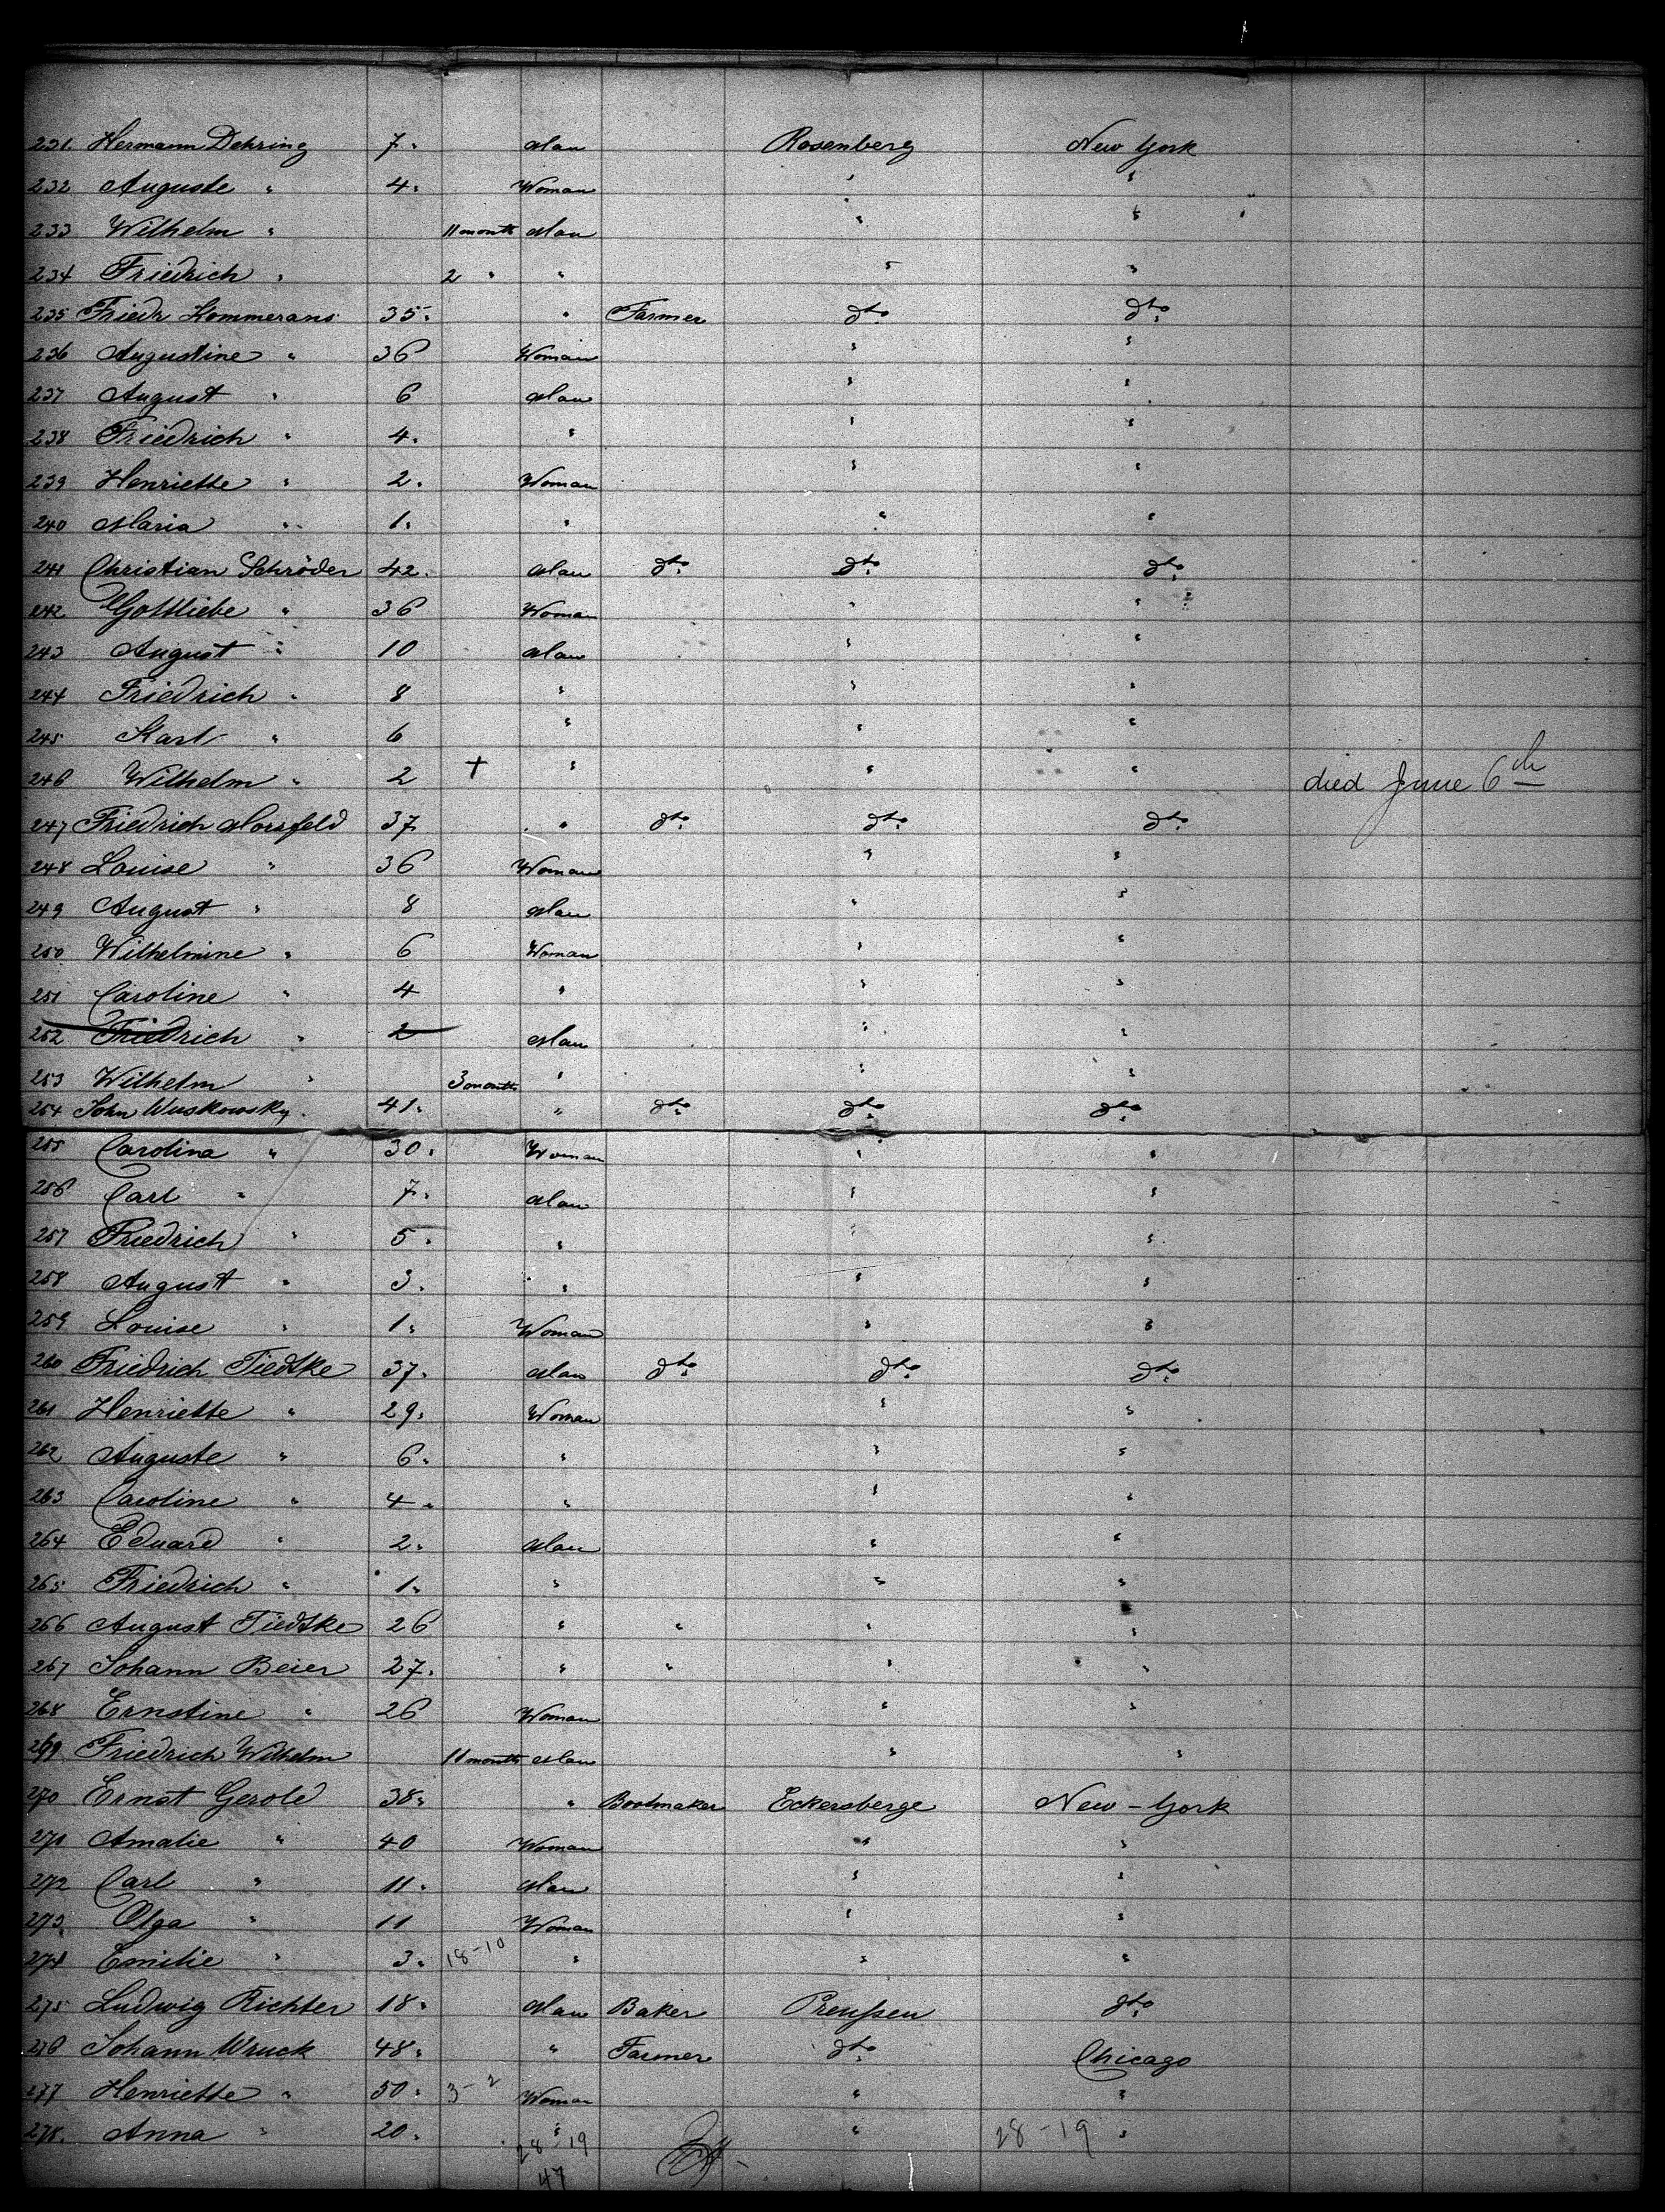 231. Hermann Dehring 7. Man Rosenberg New York
232 Auguste " 4. Woman " "
233 Wilhelm " 11 months Man " "
234 Friedrich " 2 " " " "
235 Friedr Kommerans 35. " Farmer dto. dto.
236 Augustine " 36 Woman " "
237 August " 6 Man " "
238 Friedrich " 4. " " "
239 Henriette " 2. Woman " "
240 Maria " 1. " " "
241 Christian Schröder 42. Man dto. dto. dto.
242 Gottliebe " 36 Woman " "
243 August " 10 Man " "
244 Friedrich " 8 " " "
245 Karl " 6 " " "
246 Wilhelm " 2 + " " " died June 6th
247 Friedrich Morsfeld 37 " dto. dto. dto.
248 Louise " 36 Woman " "
249 August " 8 Man " "
250 Wilhelmine " 6 Woman " "
251 Caroline " 4 " " "
252 Friedrich " 2 Man " "
253 Wilhelm " 3 months " " "
254 John Wuskowsky. 41. " dto. dto. dto.
255 Carolina " 30. Woman " "
256 Carl " 7. Man " "
257 Friedrich " 5. " " "
258 August " 3. " " "
259 Louise " 1. Woman " "
260 Friedrich Tiedtke 37. Man dto. dto. dto.
261 Henriette " 29. Woman " "
262 Auguste " 6. " " "
263 Caroline " 4. " " "
264 Eduard " 2. Man " "
265 Friedrich " 1. " " "
266 August Tiedtke 26 " " " "
267 Johann Beier 27. " " " "
268 Ernstine " 26 Woman " "
269 Friedrich Wilhelm 11 months Man " "
270 Ernst Gerold 38. " Bootmaker Eckersberge New-York
271 Amalie " 40 Woman " "
272 Carl " 11. Man " "
273. Olga " 11 Woman " "
274 Emilie " 3. 18-10 " " "
275 Ludwig Richter 18. Man Baker Preußen dto.
276 Johann Wruck 48. " Farmer dto. Chicago
277 Henriette " 50. 3-2 Woman " "
278. Anna " 20. " " 28-19 "
28-19
47